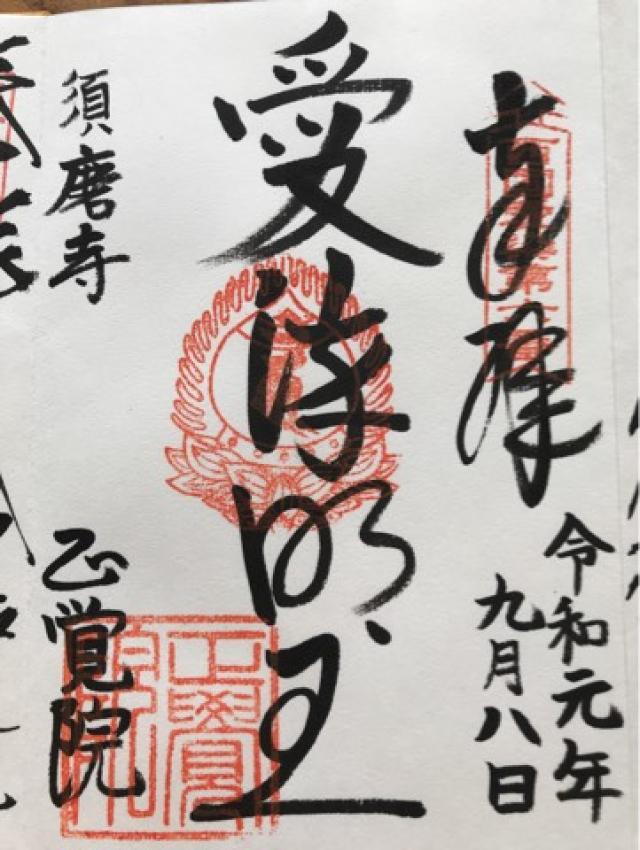 奉拝
令和元年
九月八日
愛染明王
須磨寺
正覚院
正覺院